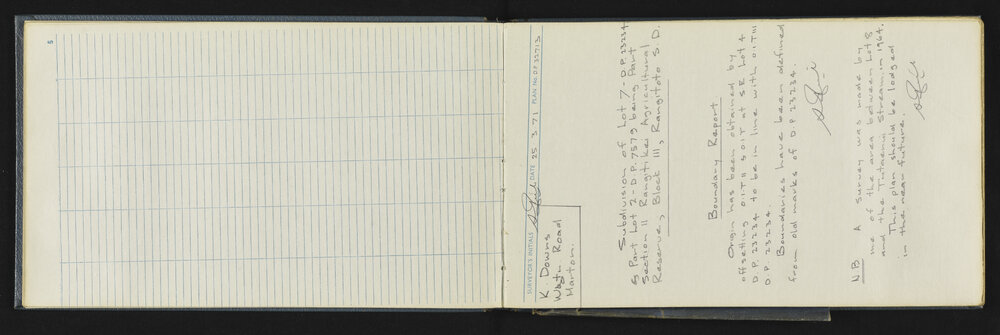 5
SURVEYOR'S INITIALS DATE 25 . 3 . 71 PLAN No. D.P. 32713
K. Downs
Wgtn. Road
Marton.
Subdivision of Lot 7 - D.P. 23234
& Part Lot 2 - D.P. 7579 being Part
Section 11 Rangitikei Agricultural
Reserve, Block III, Rangitoto S.D.
Boundary Report
Origin has been obtained by
offsetting O.I.T II & O.I.T at S.R. Lot 4
D.P. 23234 to be in line with O.I.T III
D.P. 23234.
Boundaries have been defined
from old marks of D.P. 23234.
N B A survey was made by
me of the area between Lot 8
and the Tutaenui Stream in 1964.
This plan should be lodged
in the near future.